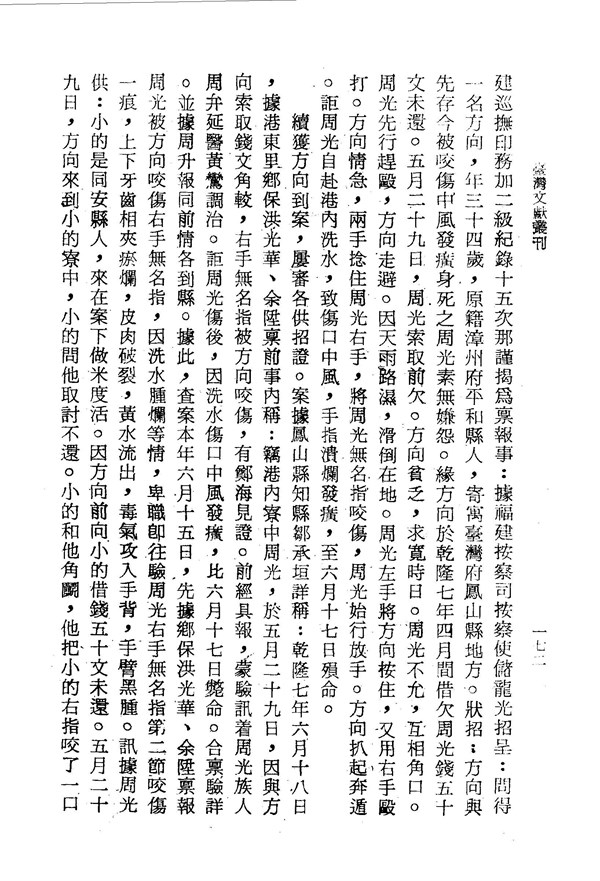 臺灣文獻叢刊
一七二
建巡撫印務加二級紀錄十五次那謹揭爲稟報事：據福建按察司按察使儲龍光招呈：問得
一名方向，年三十四歲，原籍漳州府平和縣人，寄寓臺灣府鳳山縣地方。狀招：方向與
先存今被咬傷中風發癀身死之周光素無嫌怨。緣方向於乾隆七年四月間借欠周光錢五十
文未還。五月二十九日，周光索取前欠。方向貧乏，求寬時日。周光不允，互相角口。
周光先行趕毆，方向走避。因天雨路濕，滑倒在地。周光左手將方向按住，又用右手毆
打。方向情急，兩手捻住周光右手，將周光無名指咬傷，周光始行放手。方向扒起奔遁
。詎周光自赴港內洗水，致傷口中風，手指潰爛發癀，至六月十七日殞命。
續獲方向到案，屢審各供招證。案據鳳山縣知縣鄒承垣詳稱：乾隆七年六月十八日
，據港東里鄉保洪光華、余陞稟前事內稱：竊港內寮中周光，於五月二十九日，因與方
向索取錢文角較，右手無名指被方向咬傷，有鄭海見證。前經具報，蒙驗訊着周光族人
周弁延醫黃鸞調治。詎周光傷後，因洗水傷口中風發癀，比六月十七日斃命。合稟驗詳
。並據周升報同前情各到縣。據此，查案本年六月十五日，先據鄉保洪光華、余陞稟報
周光被方向咬傷右手無名指，因洗水腫爛等情，卑職卽往驗周光右手無名指第二節咬傷
一痕，上下牙齒相夾瘀爛，皮肉破裂，黃水流出，毒氣攻入手背，手臂黑腫。訊據周光
供：小的是同安縣人，來在案下做米度活。因方向前向小的借錢五十文未還。五月二十
九日，方向來到小的寮中，小的問他取討不還。小的和他角鬭，他把小的右指咬了一口